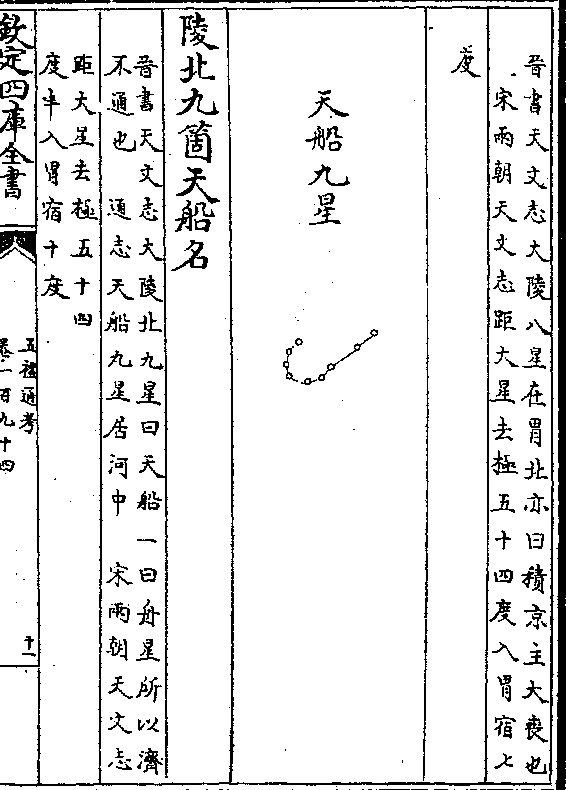 晉書天文志大陵八星在胃北亦曰積京主大喪也
宋兩朝天文志距大星去極五十四度入胃宿七
度
天船九星
陵北九箇天船名
晉書天文志大陵北九星曰天船一曰舟星所以濟
不通也 通志天船九星居河中 宋兩朝天文志
距大星去極五十四
度半入胃宿十度
欽定四庫全書
五禮通考
卷一百九十四
十一